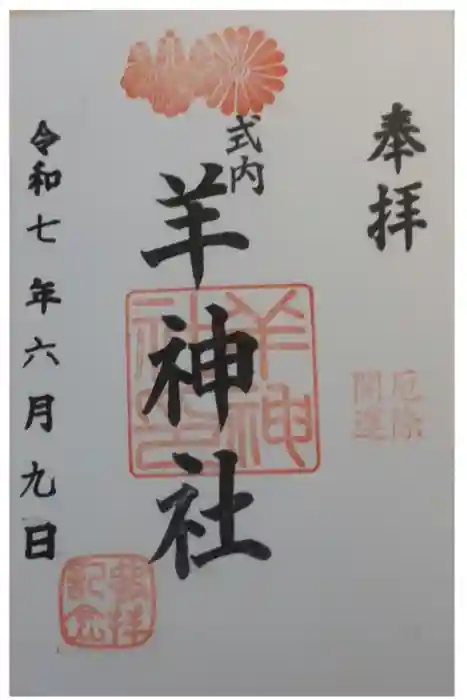 奉拝
厄除
開運
式内
羊神社
羊神
社印
令和七年六月九日
参拝
記念